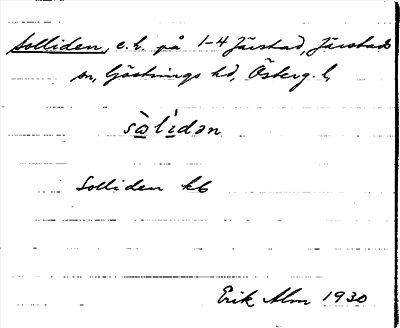 Solliden, e.h. på 1-4 Järstad, Järstads
sn, Göstrings hd, Österg. l.
sòl ìdən
Solliden kb
Erik Alm 1930